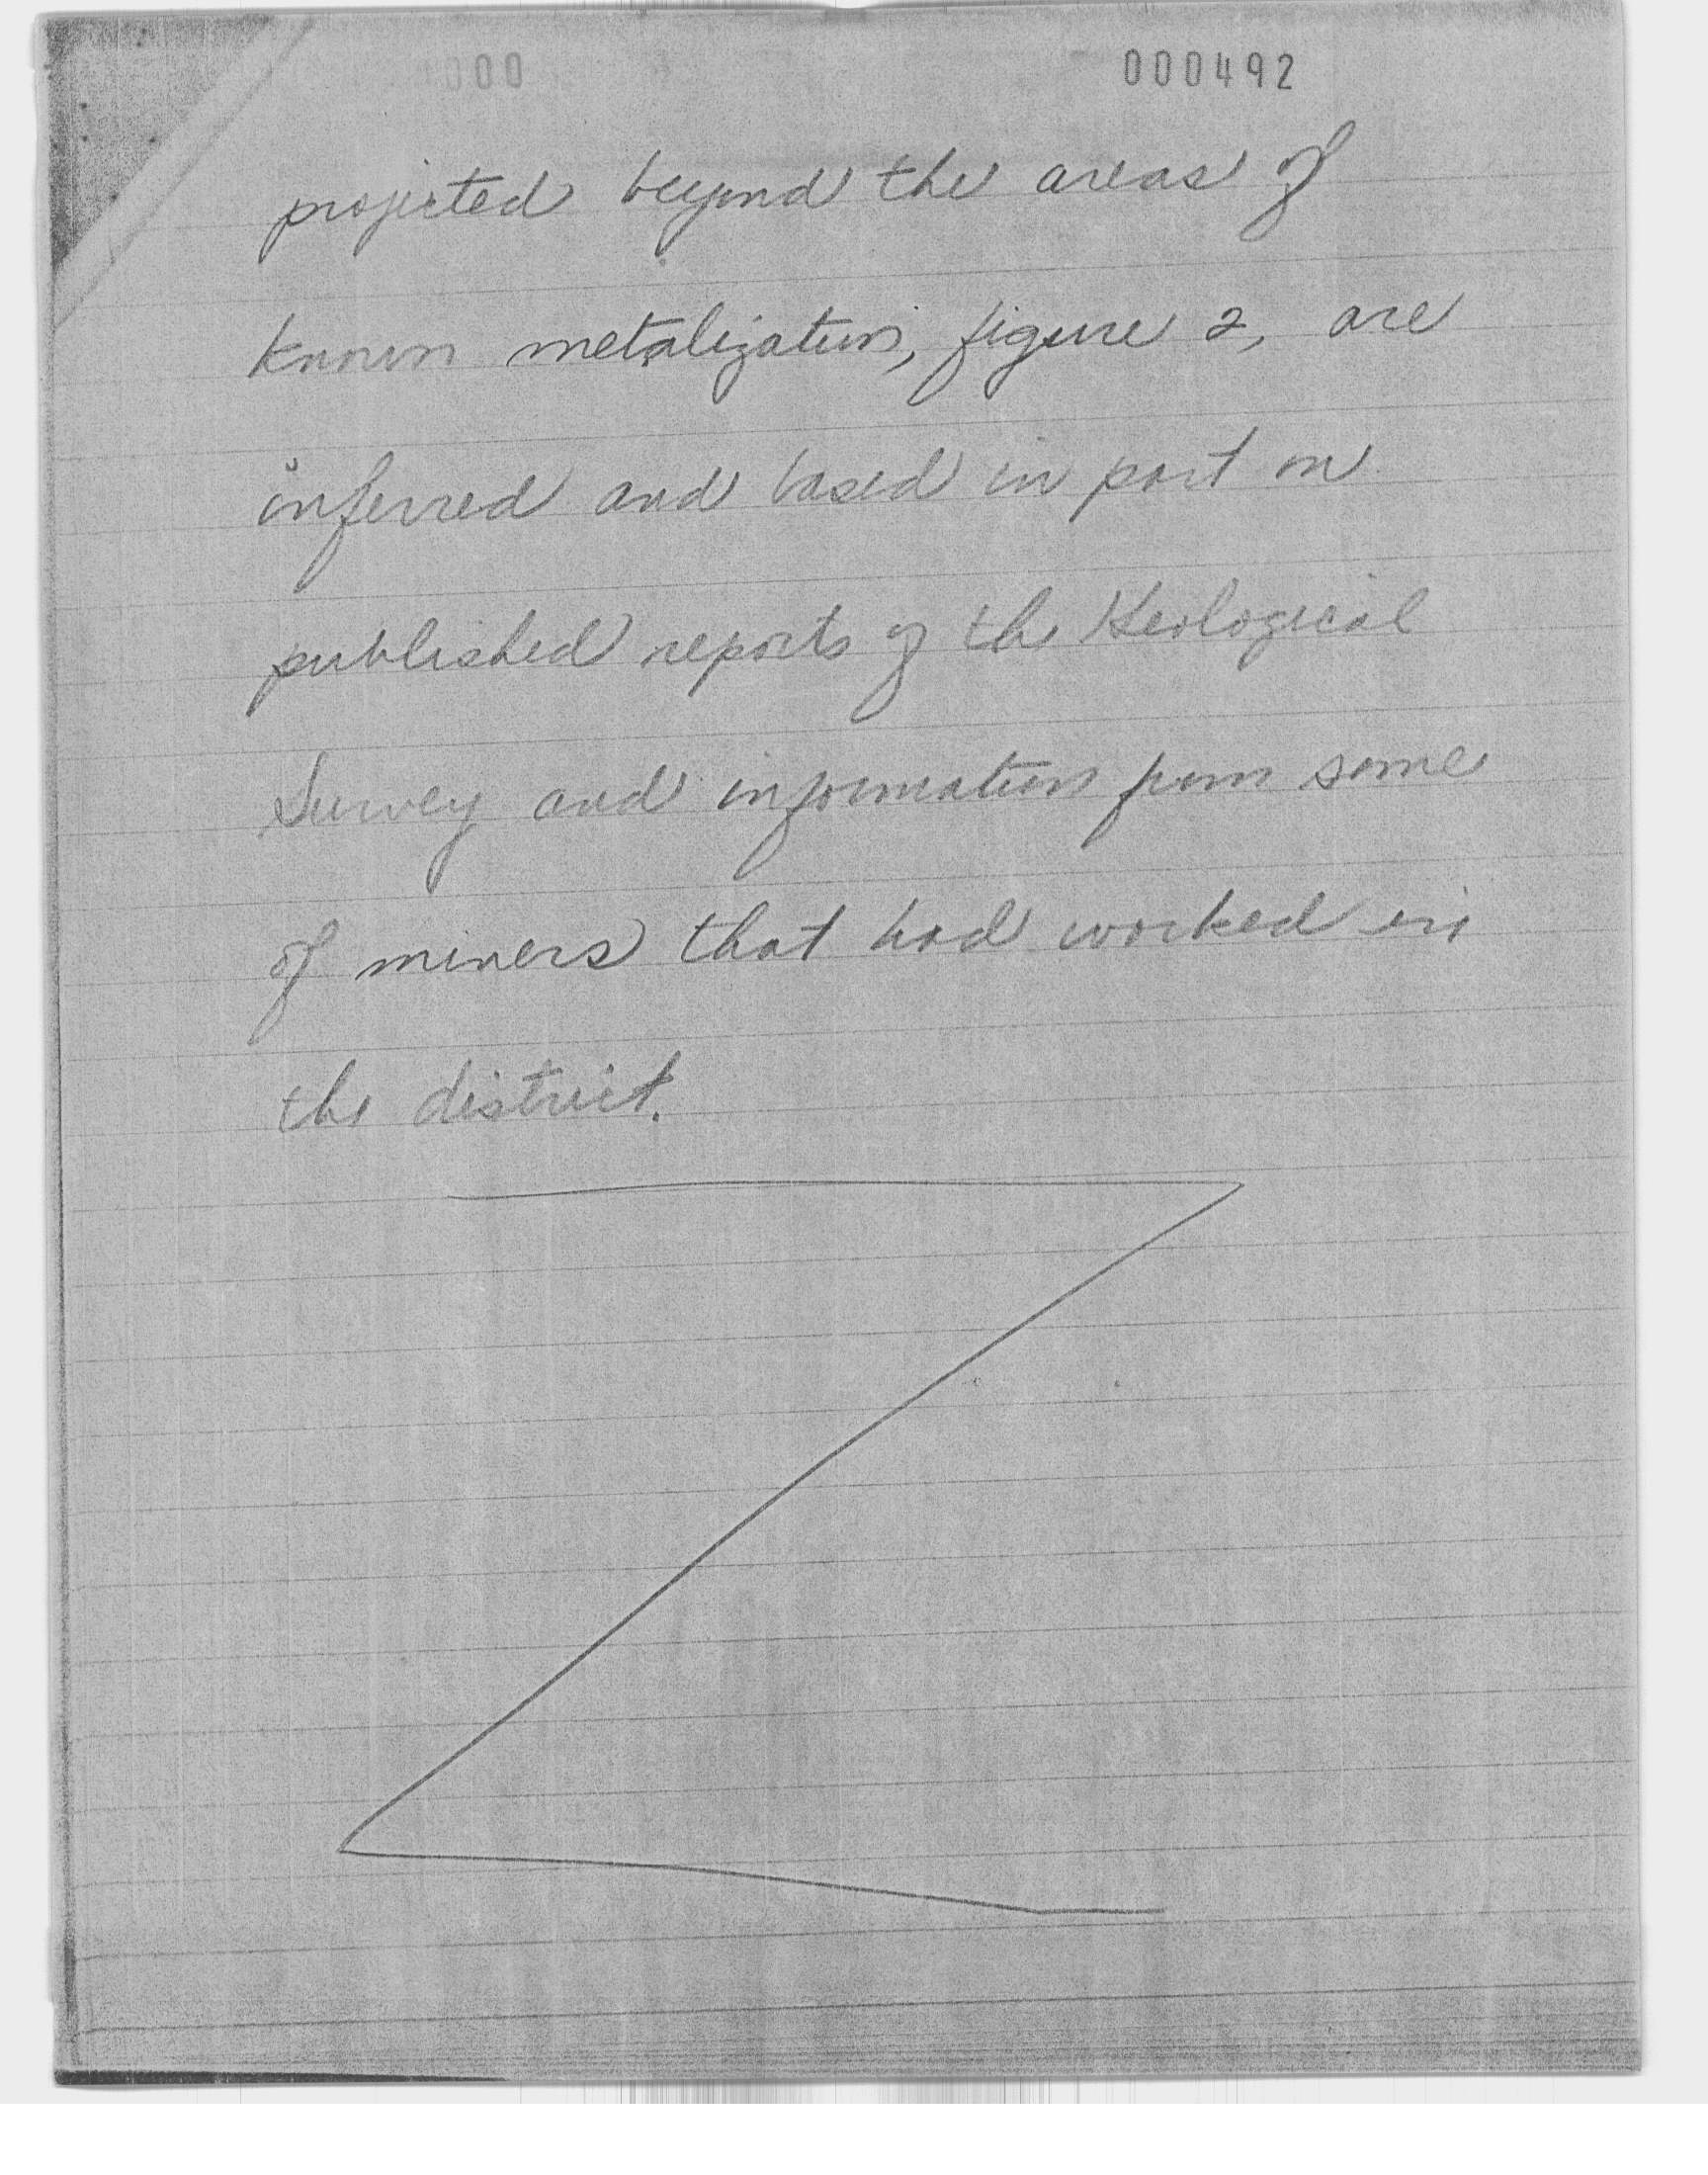 000 000492
projected beyond the areas of
known metalization, figure 2, are
inferred and based in part on
published reports of the Geological
Survey and information from some
of miners that had worked in
the district.